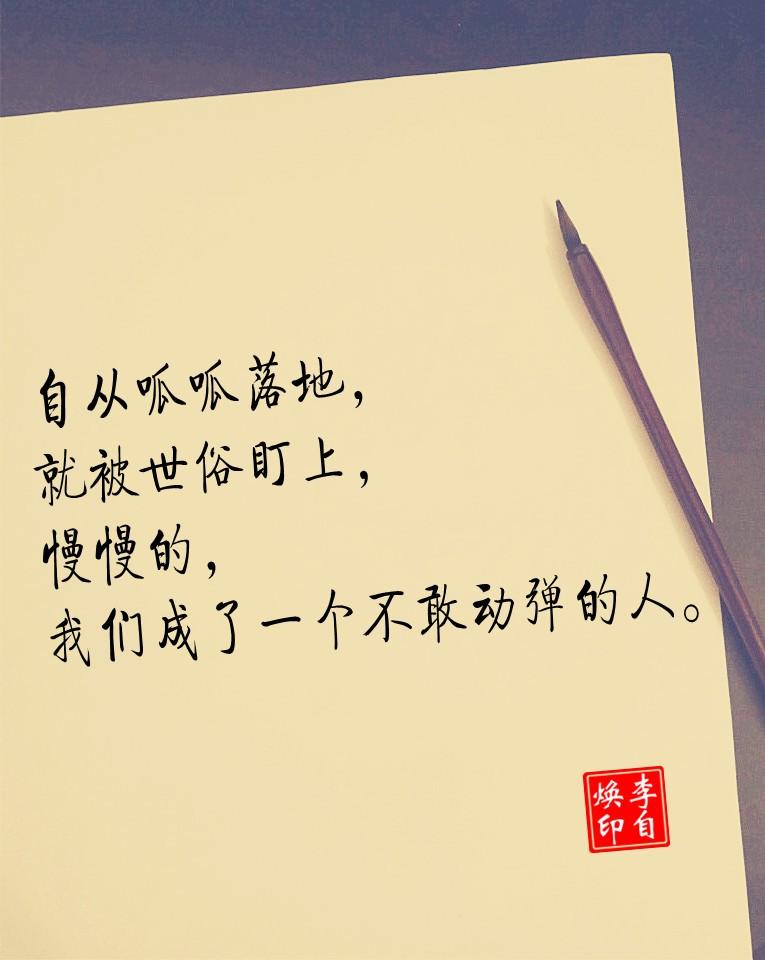 自从呱呱落地，
就被世俗盯上，
慢慢的，
我们成了一个不敢动弹的人。
李自
焕印